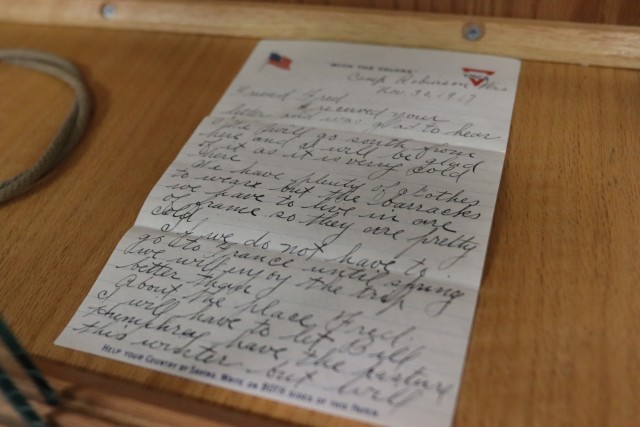 WITH THE COLORS
Camp Robinson, Wis
Nov. 1917
Friend Fred. I received your
letter and was glad to hear
We will go south from
here and I will be glad
of it as it is very cold
here
We have plenty of clothes
to wear but the barracks
we have to live in are
of frame so they are pretty
cold
If we do not have to
go to France until spring
we will enjoy the trip
better than
About the place Fred.
I will have to let Bill
Humphrey have the pasture
this winter but will
HELP YOUR COUNTRY BY SAVING. WRITE ON BOTH SIDES OF THIS PAPER.